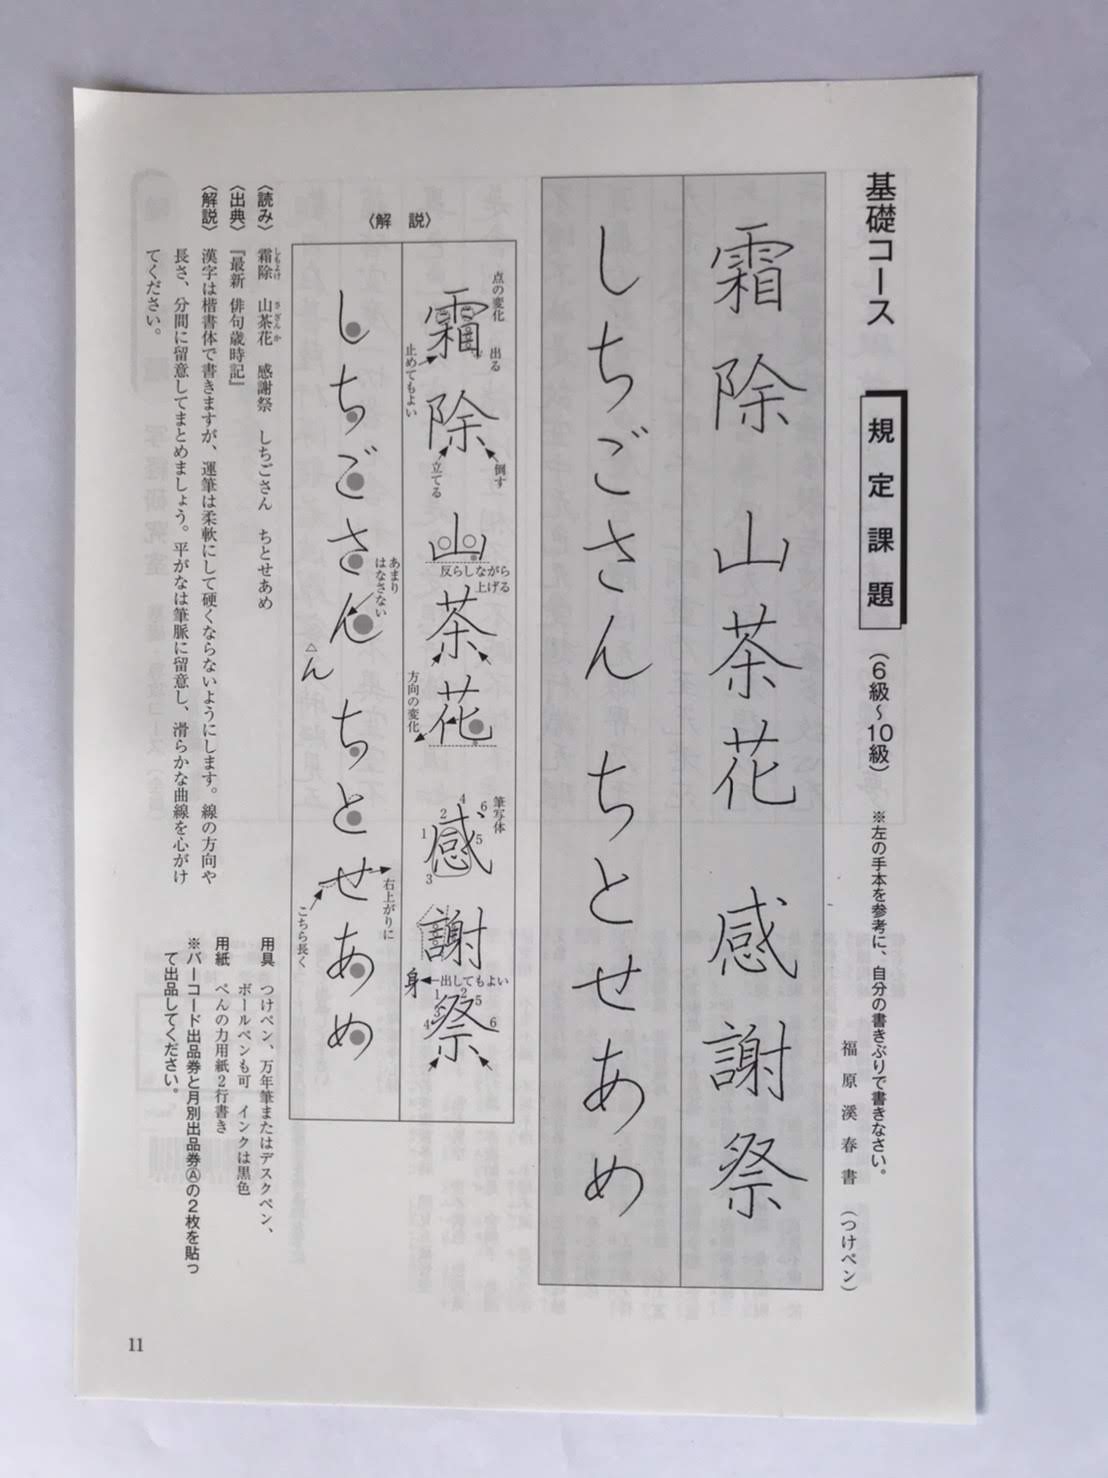 基礎コース 規定課題 （6級〜10級） ※左の手本を参考に、自分の書きぶりで書きなさい。
福原溪春書 （つけペン）
霜除 山茶花 感謝祭
しちごさん ちとせあめ
〈解説〉
点の変化
出る
霜除 山茶花 感謝祭
止めてもよい
立てる
倒す
反らしながら
上げる
方向の変化
筆写体
1 2 3 4 5 6
出してもよい
身
1 2 3 4 5 6
しちごさん ちとせあめ
あまり
はなさない
△ん
右上がりに
こちら長く
〈読み〉 霜除 山茶花 感謝祭 しちごさん ちとせあめ
しもよけ さざんか
〈出典〉 『最新 俳句歳時記』
〈解説〉 漢字は楷書体で書きますが、運筆は柔軟にして硬くならないようにします。線の方向や
長さ、分間に留意してまとめましょう。平がなは筆脈に留意し、滑らかな曲線を心がけ
てください。
用具 つけペン、万年筆またはデスクペン、
ボールペンも可 インクは黒色
用紙 ぺんの力用紙2行書き
※バーコード出品券と月別出品券Ⓐの2枚を貼っ
て出品してください。
11